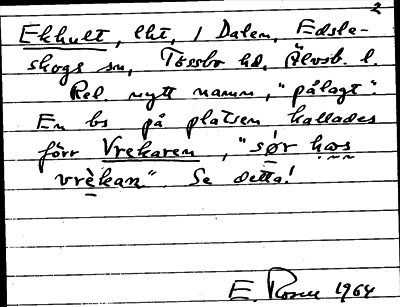 2
Ekhult, lht, i Dalen, Edsle-
skogs sn, Tössbo hd, Älvsb. l.
Rel nytt namn, "pålagt".
En bs på platsen kallades
förr Vrekaren, "sør hos
vrèkan". Se detta!
E. Rosen 1964